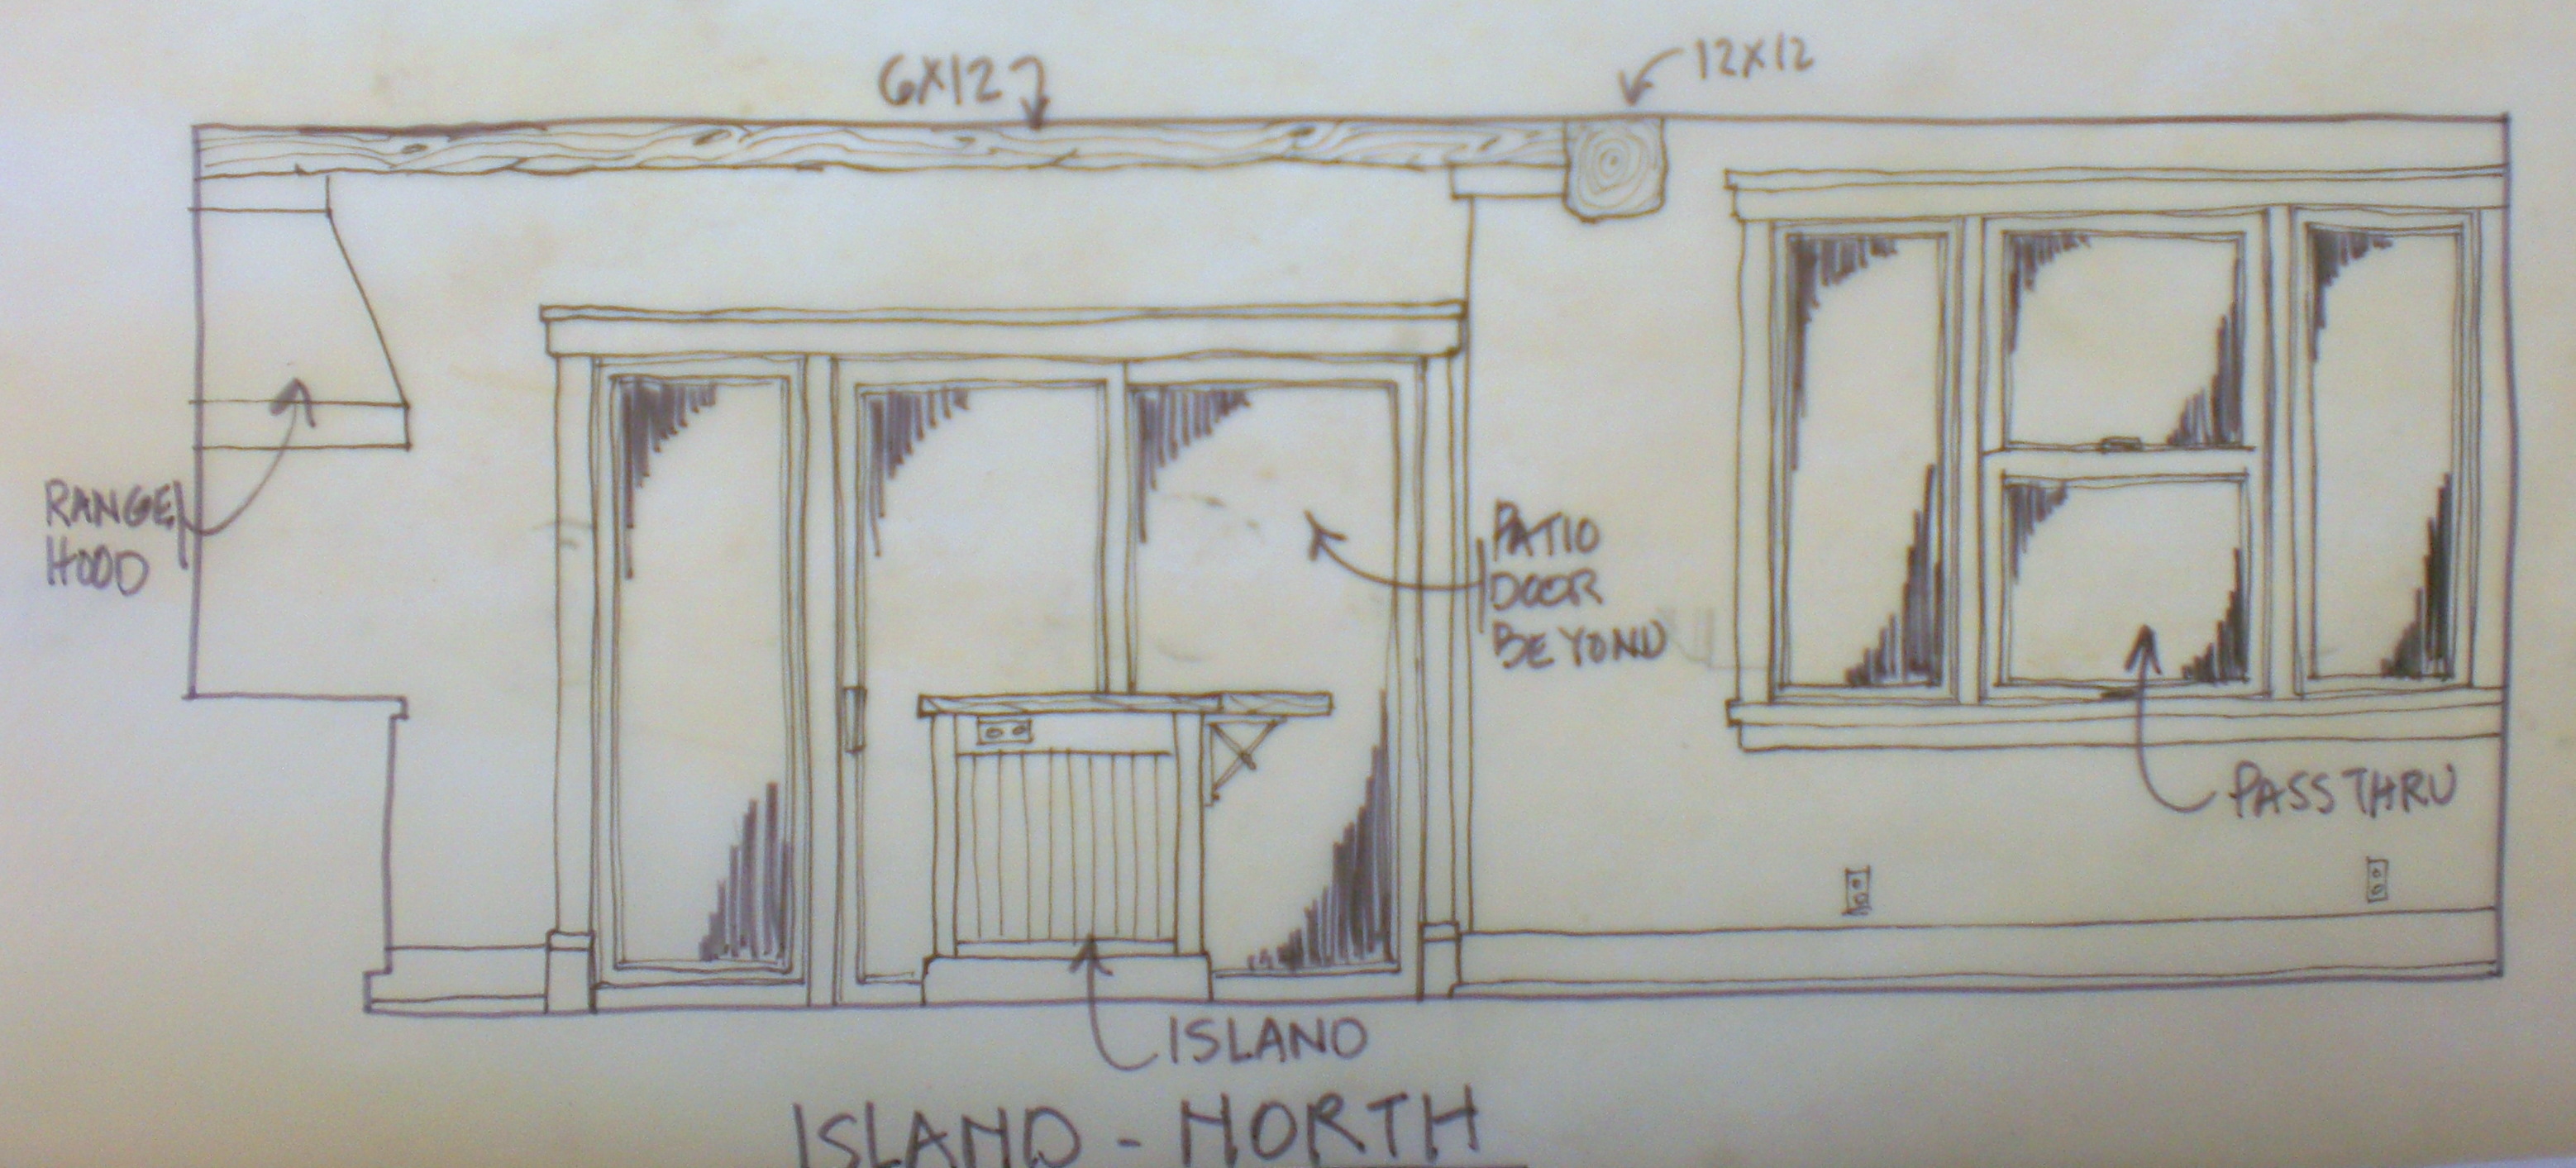 6X12
12X12
RANGE
HOOD
PATIO
DOOR
BEYOND
PASS THRU
ISLAND
ISLAND - NORTH